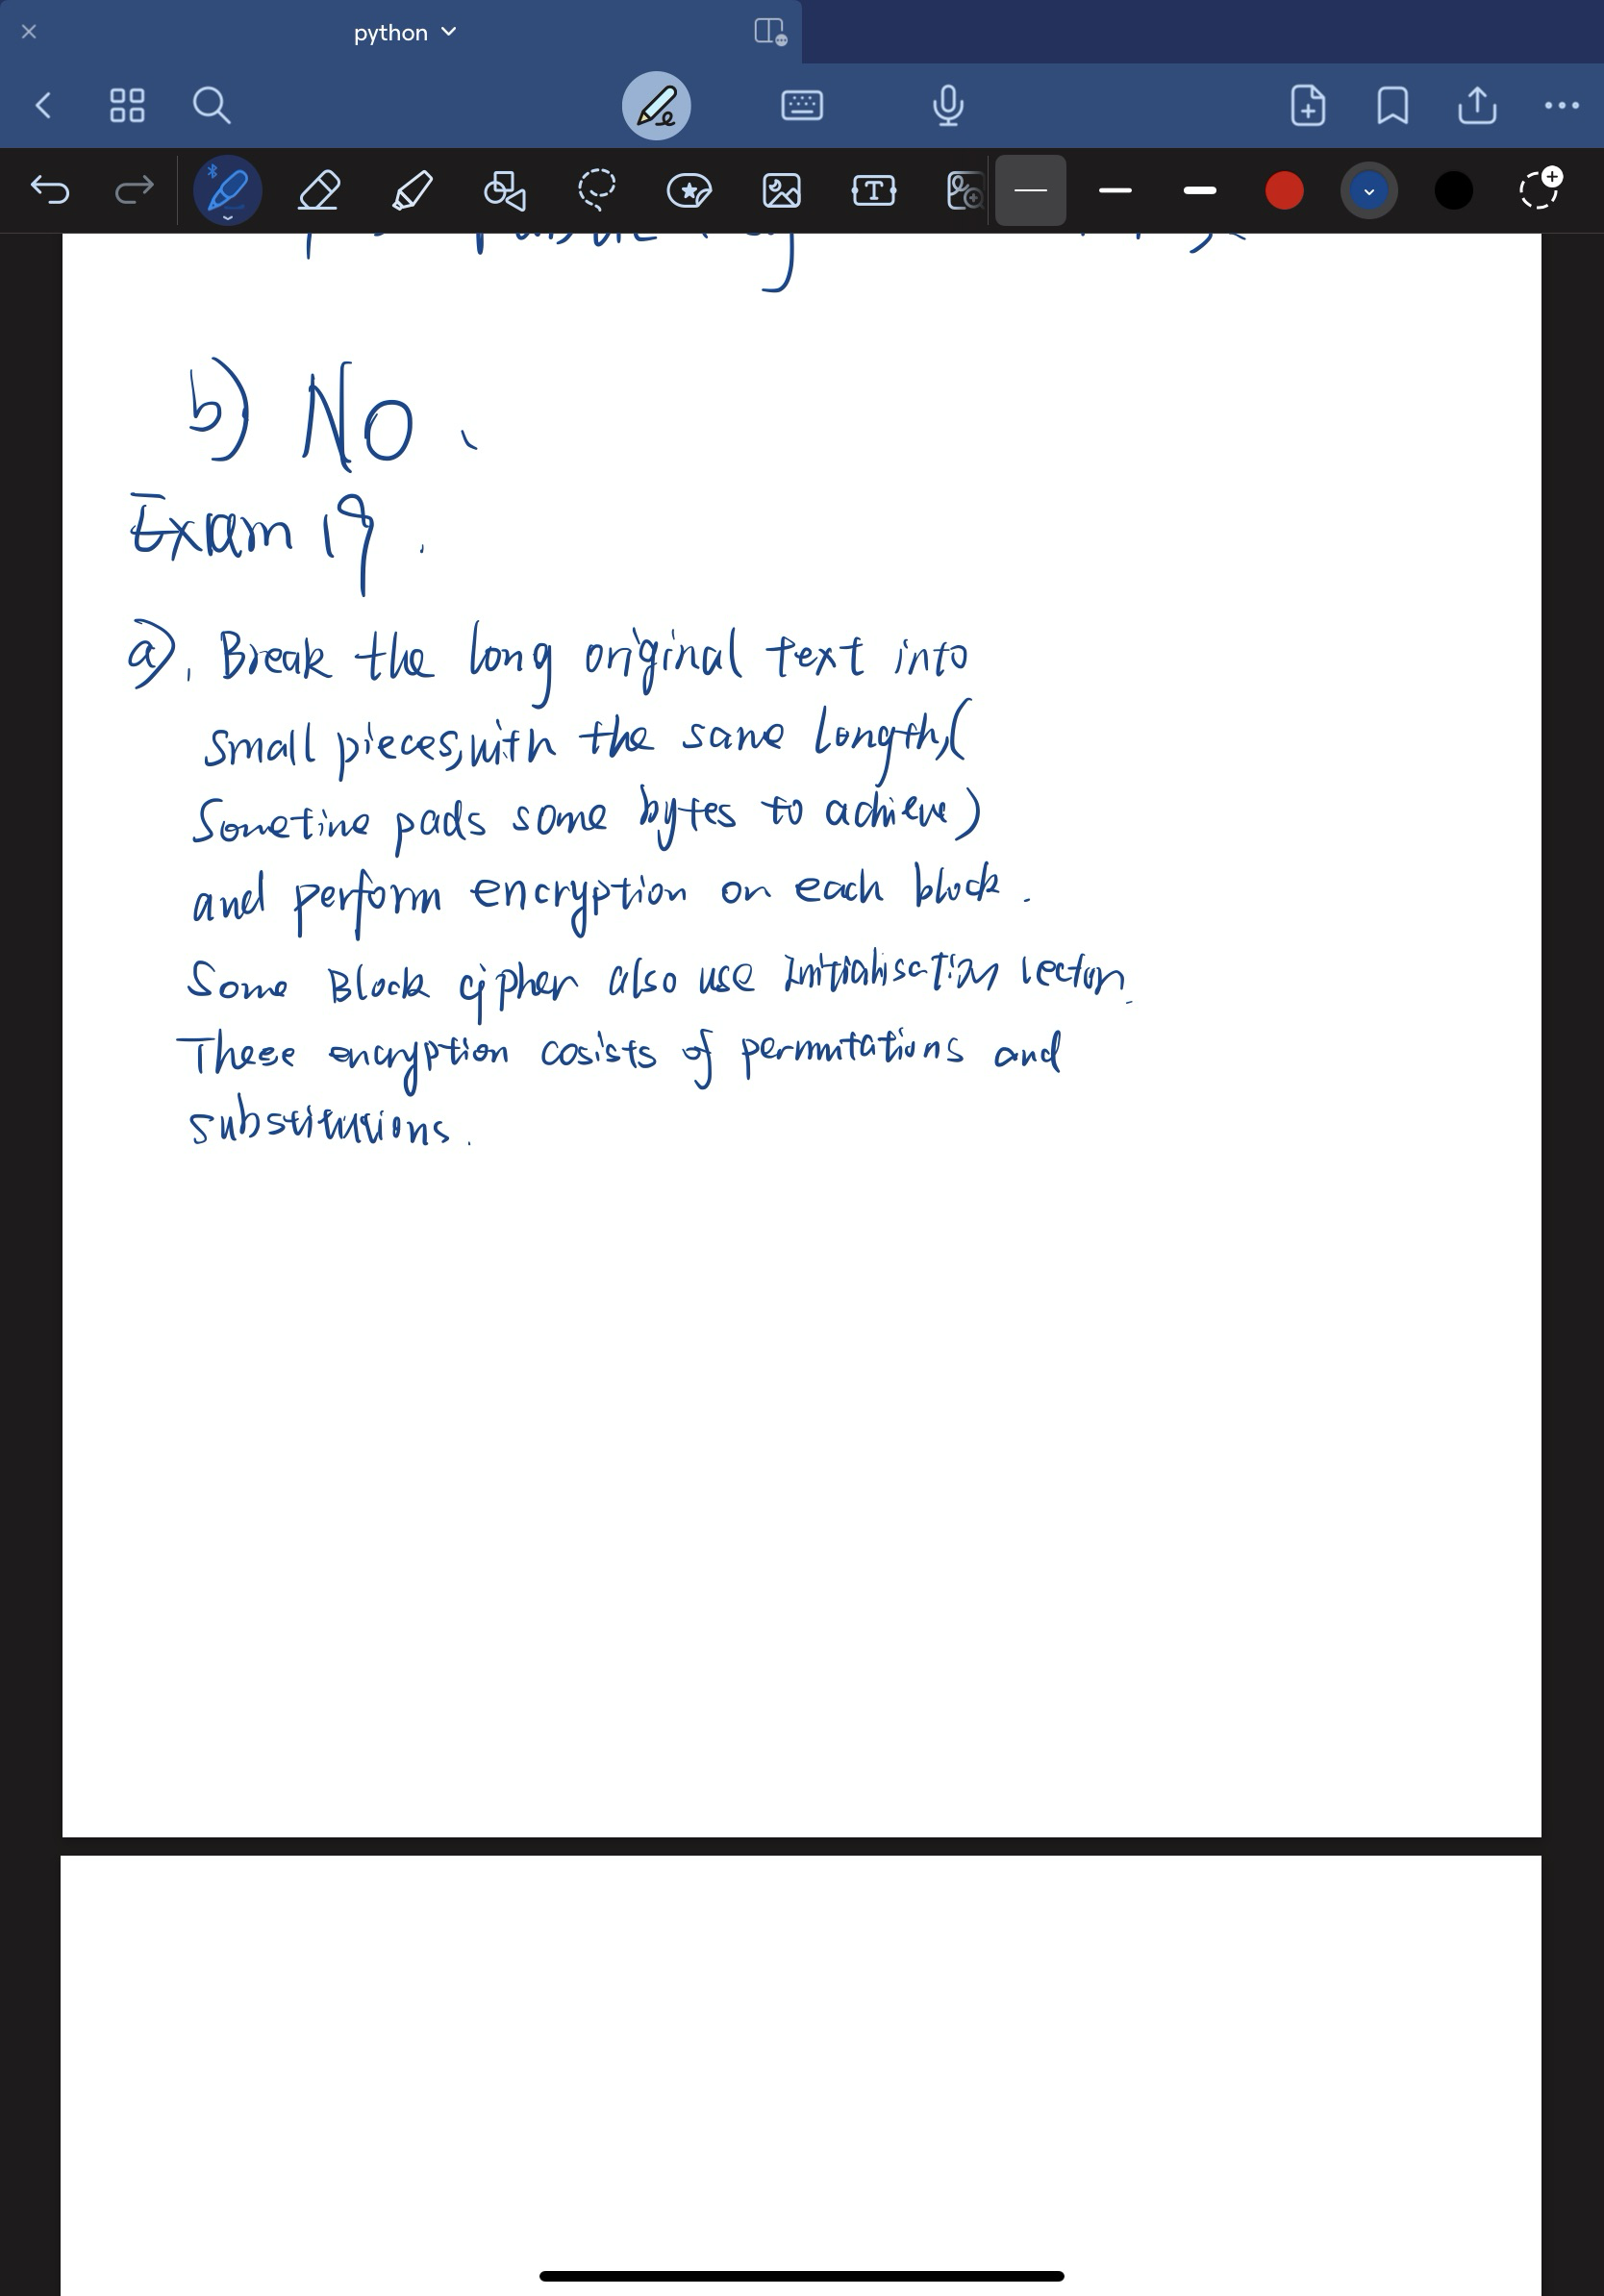 python
b) No.
Exam 19.
a). Break the long original text into
small pieces, with the same length, (
Sometime pads some bytes to achieve)
and perform encryption on each block.
Some Block cipher also use Initialisation vector.
These encryption cosists of permutations and
substitutions.